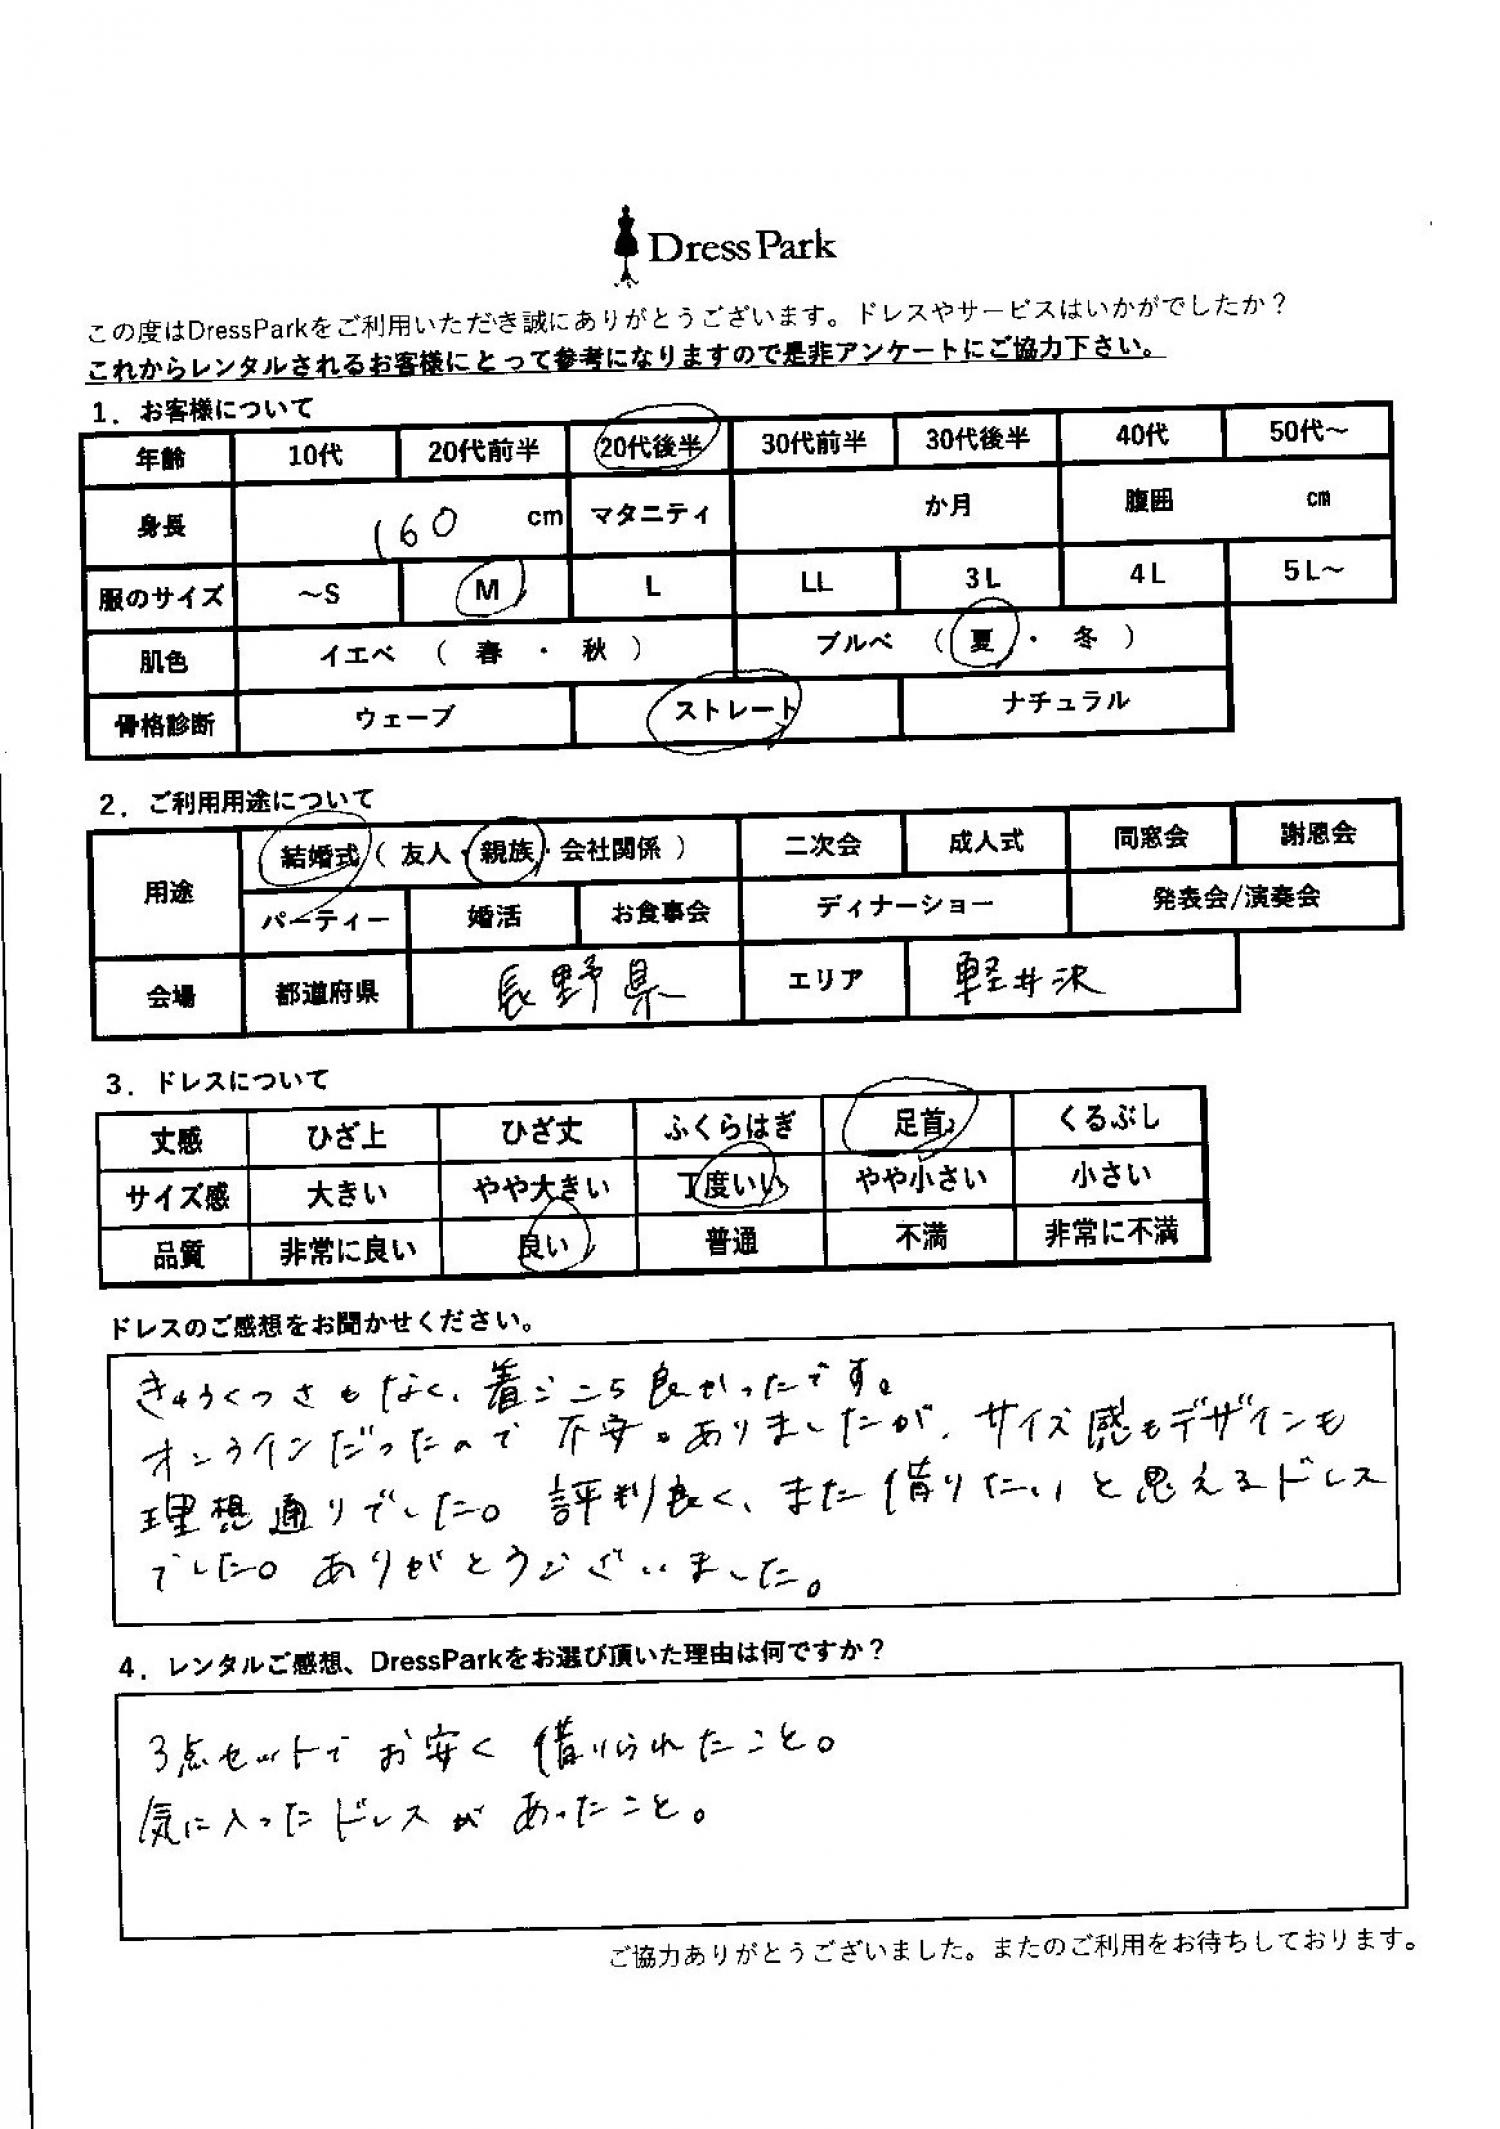 Dress Park
この度はDressParkをご利用いただき誠にありがとうございます。ドレスやサービスはいかがでしたか？
これからレンタルされるお客様にとって参考になりますので是非アンケートにご協力下さい。
1．お客様について
年齢 10代 20代前半 20代後半 30代前半 30代後半 40代 50代～
身長 160 cm マタニティ か月 腹囲 cm
服のサイズ ～S M L LL 3L 4L 5L～
肌色 イエベ （ 春 ・ 秋 ） ブルベ （ 夏 ・ 冬 ）
骨格診断 ウェーブ ストレート ナチュラル
2．ご利用用途について
用途 結婚式（ 友人・親族・会社関係 ） 二次会 成人式 同窓会 謝恩会
パーティー 婚活 お食事会 ディナーショー 発表会/演奏会
会場 都道府県 長野県 エリア 軽井沢
3．ドレスについて
丈感 ひざ上 ひざ丈 ふくらはぎ 足首 くるぶし
サイズ感 大きい やや大きい 丁度いい やや小さい 小さい
品質 非常に良い 良い 普通 不満 非常に不満
ドレスのご感想をお聞かせください。
きゅうくつさもなく、着ごこち良かったです。
オンラインだったので不安もありましたが、サイズ感もデザインも
理想通りでした。評判良く、また借りたいと思えるドレス
でした。ありがとうございました。
4．レンタルご感想、DressParkをお選び頂いた理由は何ですか？
3点セットでお安く借りられたこと。
気に入ったドレスがあったこと。
ご協力ありがとうございました。またのご利用をお待ちしております。